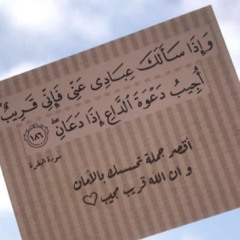 وَإِذَا سَأَلَكَ عِبَادِى عَنِّى فَإِنِّى قَرِيبٌ
أُجِيبُ دَعْوَةَ ٱلدَّاعِ إِذَا دَعَانِ ۖ ١٨٦
سورة البقرة
أقصر جملة تمسك بالأمان
و ان الله قريب مجيب ♡